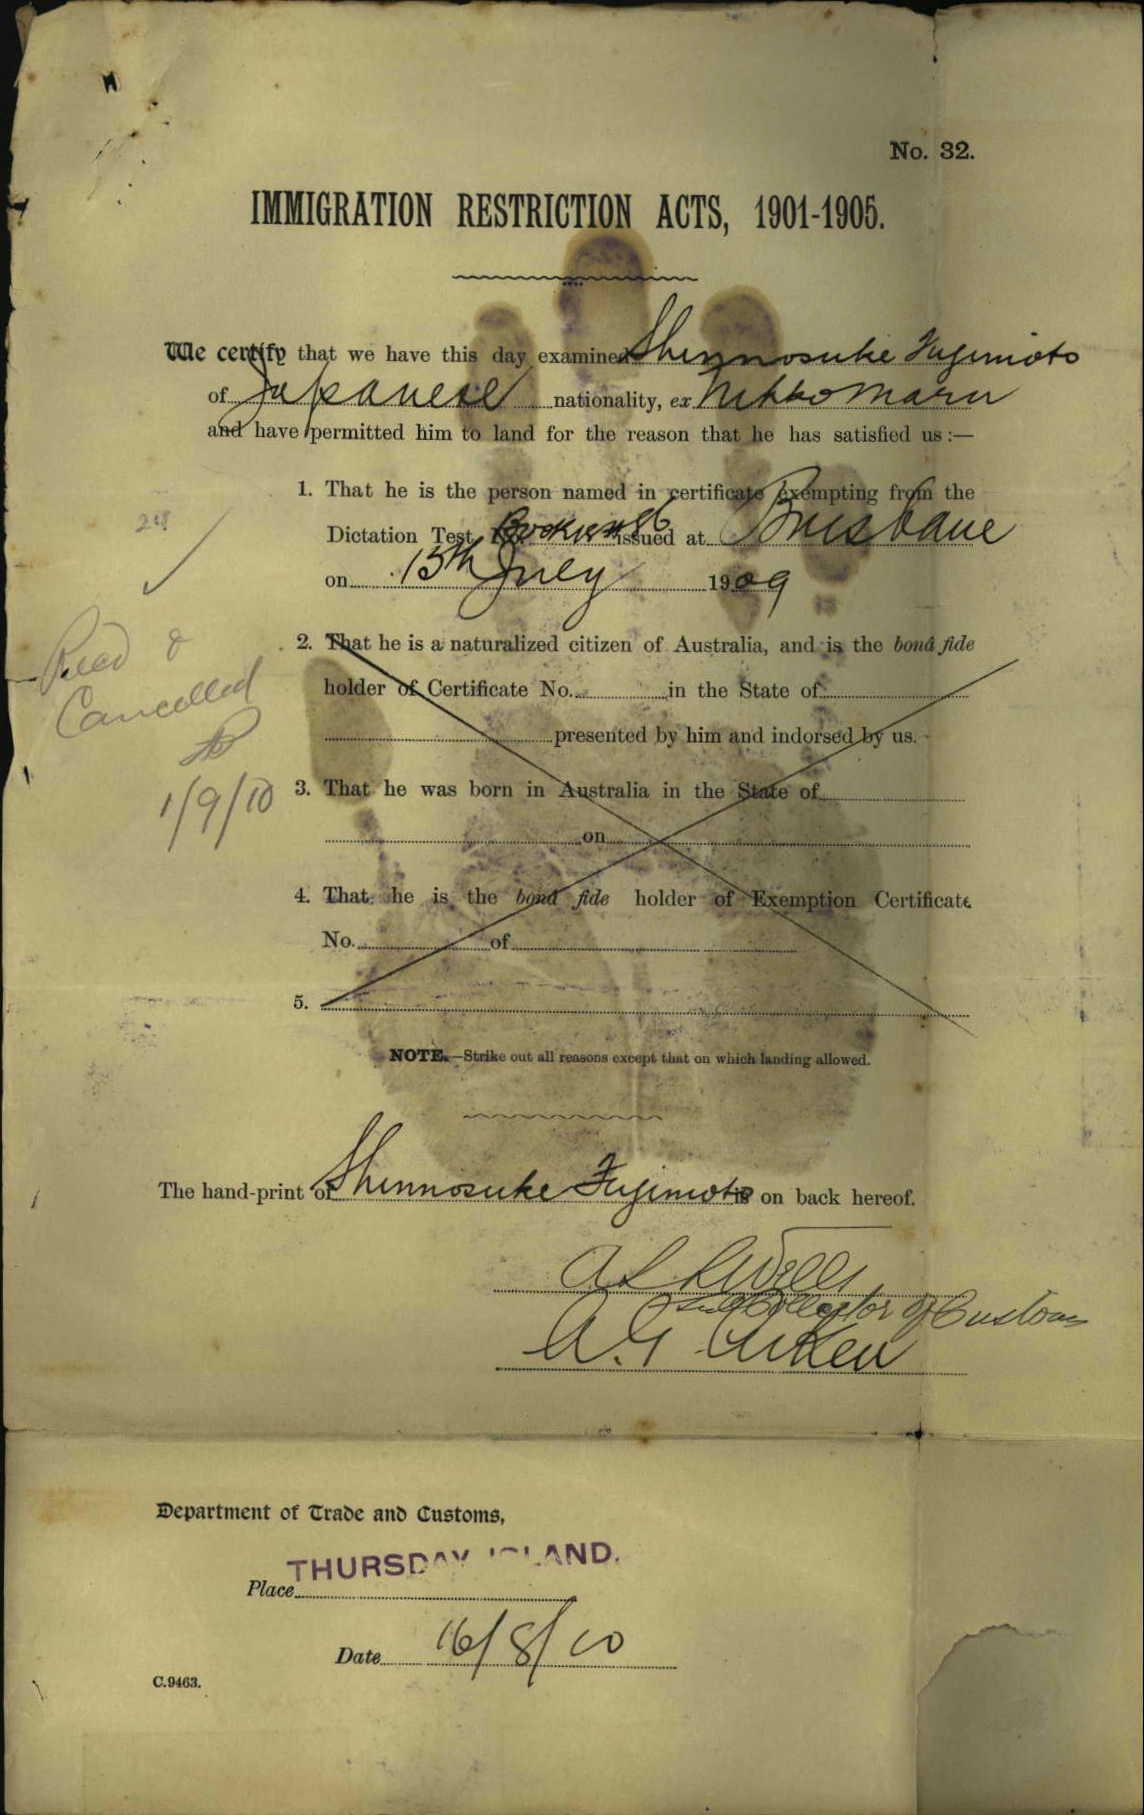 No. 32.
IMMIGRATION RESTRICTION ACTS, 1901-1905.
We certify that we have this day examined Shinnosuke Fujimoto
of Japanese nationality, ex Nikko Maru
and have permitted him to land for the reason that he has satisfied us :—
1. That he is the person named in certificate exempting from the
Dictation Test, Book issued at Brisbane
on 15th July 1909
2. That he is a naturalized citizen of Australia, and is the bonâ fide
holder of Certificate No. in the State of
presented by him and indorsed by us.
3. That he was born in Australia in the State of
on
4. That he is the bonâ fide holder of Exemption Certificate
No. of
5.
NOTE.—Strike out all reasons except that on which landing allowed.
Cancelled
1/9/10
The hand-print of Shinnosuke Fujimoto is on back hereof.
Sub Collector of Customs
A.G. Aiken
Department of Trade and Customs,
THURSDAY ISLAND.
Place
Date 16/8/10
C.9463.